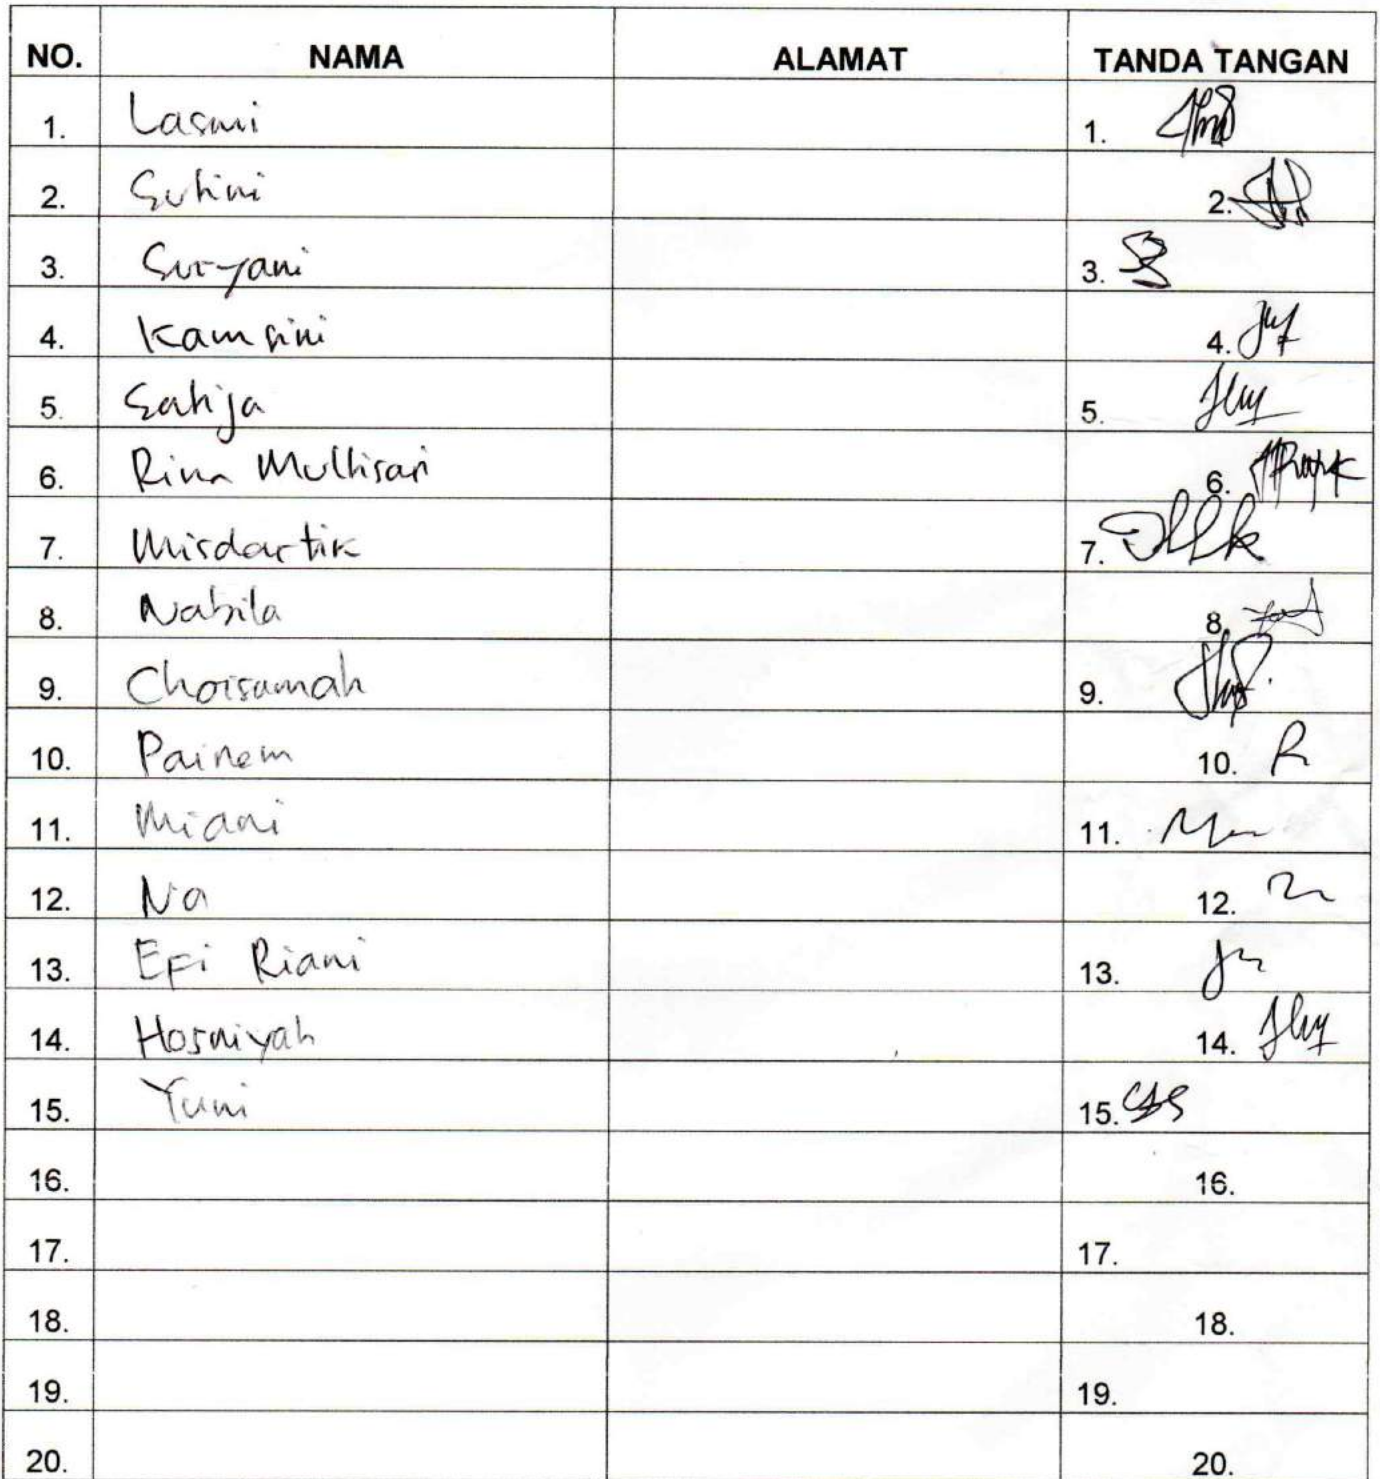 NO. NAMA ALAMAT TANDA TANGAN
1. Lasmi 1.
2. Sutini 2.
3. Suryani 3.
4. Kamsini 4.
5. Satija 5.
6. Rina Multisari 6.
7. Misdartik 7.
8. Nabila 8.
9. Choisamah 9.
10. Painem 10.
11. Miani 11.
12. Na 12.
13. Efi Riani 13.
14. Hosniyah 14.
15. Yuni 15.
16. 16.
17. 17.
18. 18.
19. 19.
20. 20.